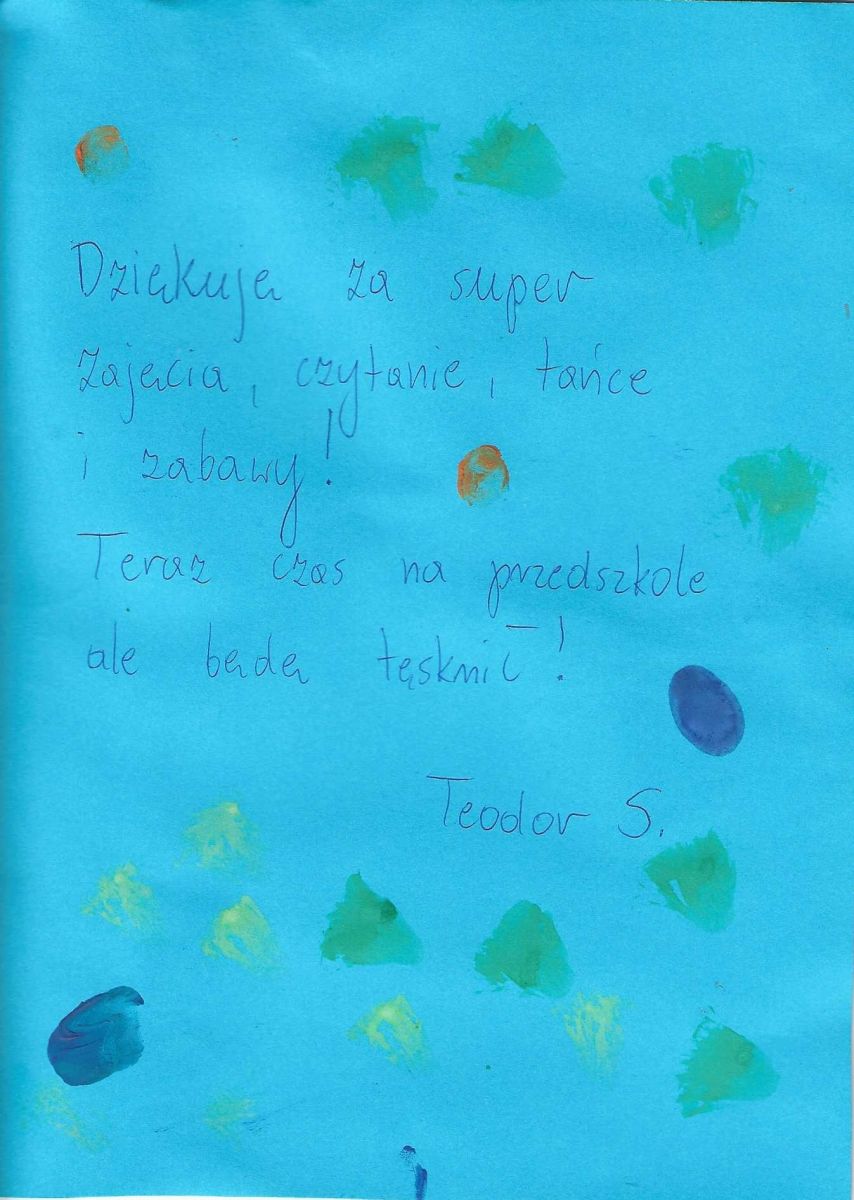 Dziękuję za super
zajęcia, czytanie, tańce
i zabawy!
Teraz czas na przedszkole
ale będę tęsknić!
Teodor S.